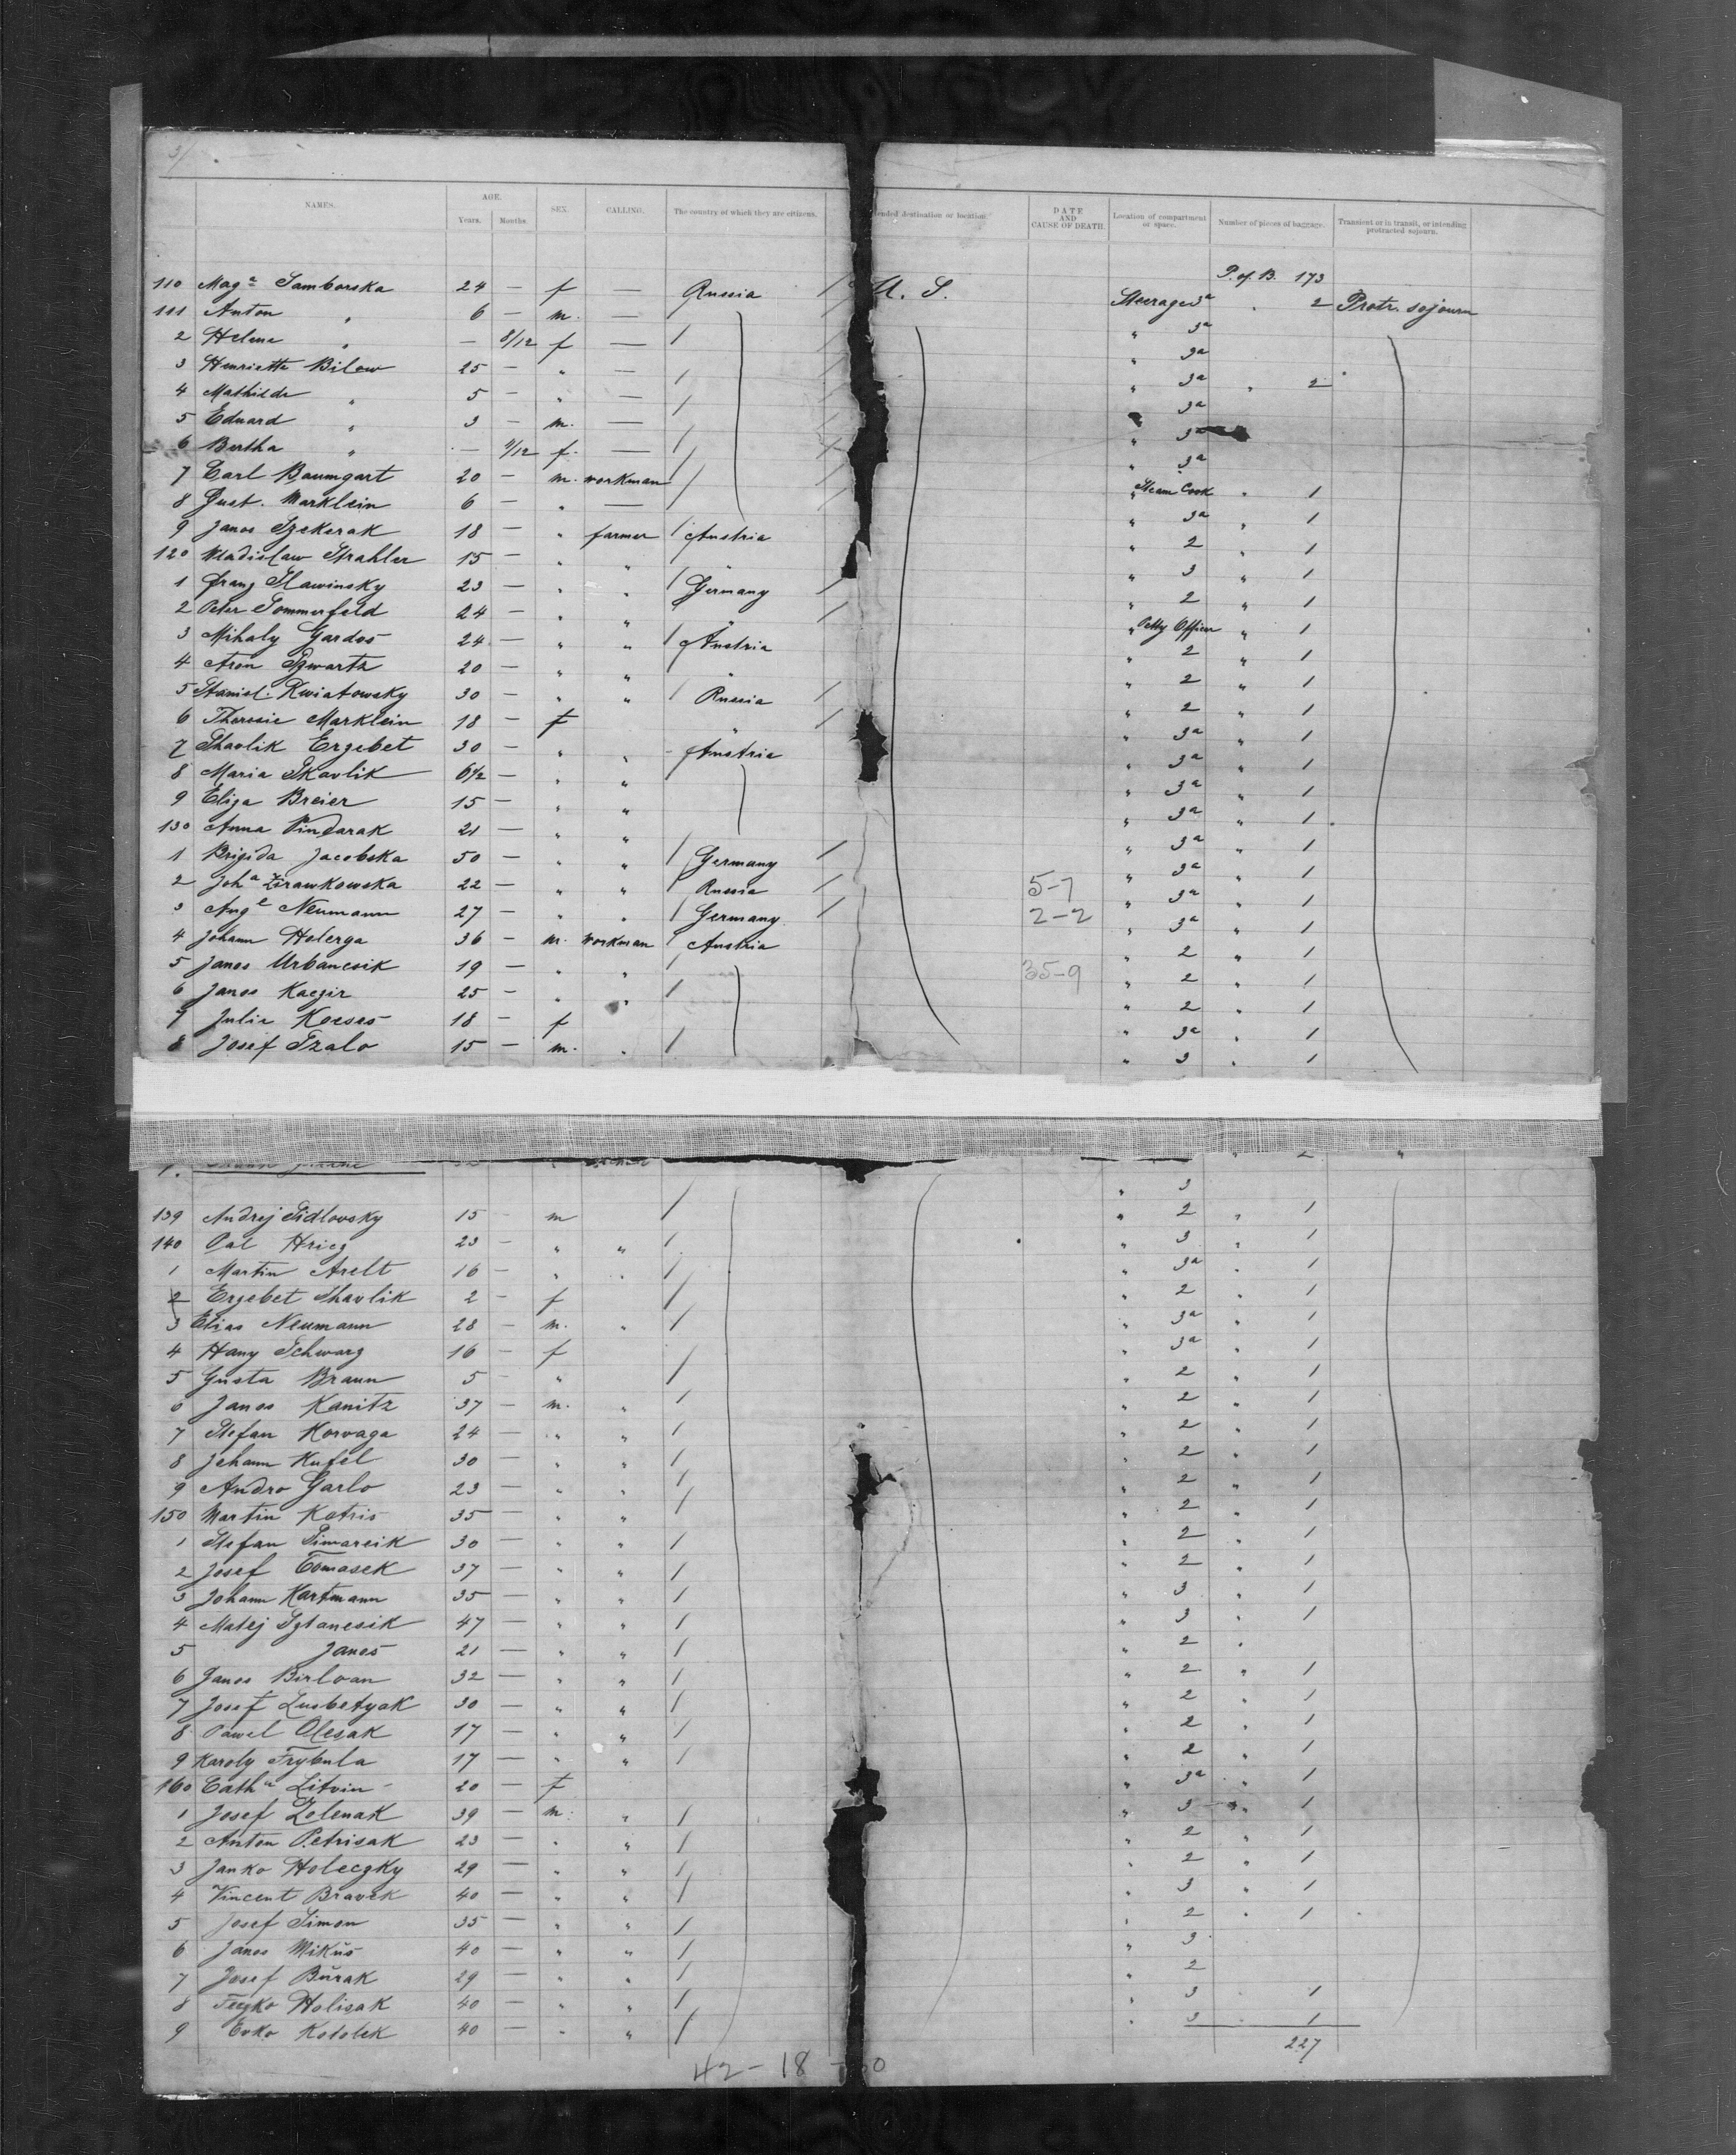 3/
NAMES. AGE. Years. Months. SEX. CALLING. The country of which they are citizens. ended destination or location. DATE AND CAUSE OF DEATH. Location of compartment or space. Number of pieces of baggage. Transient or in transit, or intending protracted sojourn.
P. of B. 173
110 Mag a Samborska 24 — f — Russia / U. S. Steerage 3a " 2 Protr. sojourn
111 Anton " 6 — m. — " 3a
2 Helene " — 8/12 f — / " 3a
3 Henriette Bilow 25 — " — / " 3a " 2
4 Mathilde " 5 — " — / " 3a
5 Eduard " 3 — m. — " 3a
6 Bertha " — 4/12 f. — / " 3a
7 Carl Baumgart 20 — m. workman / " Steam Cook " 1
8 Gust. Marklein 6 — " — / " 3a " 1
9 Janos Szekerak 18 — " farmer / Austria " 2 " 1
120 Wladislaw Strahler 15 — " " " " 3 " 1
1 Franz Slawinsky 23 — " " / Germany / " 2 " 1
2 Peter Sommerfeld 24 — " " " / " Petty Officer " 1
3 Mihaly Gardos 24 — " " / Austria " 2 " 1
4 Aron Szwartz 20 — " " " " 2 " 1
5 Stanisl. Kwiatowsky 30 — " " / Russia / " 2 " 1
6 Theresie Marklein 18 — f " / " 3a " 1
7 Skavlik Erzebet 30 — " " - Austria " 3a " 1
8 Maria Skavlik 6½ — " " " 3a " 1
9 Eliza Breier 15 — " " " 3a " 1
130 Anna Pindarak 21 — " " " 3a " 1
1 Brigida Jacobska 50 — " " / Germany / " 3a " 1
2 Joh a Zirawkowska 22 — " " / Russia / 5-7 " 3a " 1
3 Aug e Neumann 27 — " " / Germany / 2-2 " 3a " 1
4 Johann Holerga 36 — m. workman / Austria " 2 " 1
5 Janos Urbancsik 19 — " " / 35-9 " 2 " 1
6 Janos Kaczir 25 — " " / " 2 " 1
7 Julie Kocses 18 — f " 3a " 1
8 Josef Szalo 15 — m. " / " 3 " 1
139 Andrej Sidlovsky 15 - m / " 2 " 1
140 Pal Hricz 23 — " " / " 3 " 1
1 Martin Arelt 16 — " " / " 3a " 1
2 Erzebet Skavlik 2 — f / " 2 " 1
3 Elias Neumann 28 — m. " / " 3a " 1
4 Hany Schwarz 16 — f " 3a " 1
5 Gusta Braun 5 — " / " 2 " 1
6 Janos Kanitz 37 — m. " / " 2 " 1
7 Stefan Korvaga 24 — " " / " 2 " 1
8 Johann Kufel 30 — " " / " 2 " 1
9 Andro Garlo 23 — " " / " 2 " 1
150 Martin Kotris 35 — " " / " 2 " 1
1 Stefan Simarcik 30 — " " / " 2 " 1
2 Josef Tomasek 37 — " " / " 2 " 1
3 Johann Hartmann 35 — " " / " 3 " 1
4 Matej Sztancsik 47 — " " / " 3 " 1
5 Janos 21 — " " / " 2 "
6 Janos Birloan 32 — " " / " 2 " 1
7 Josef Lusbetyak 30 — " " / " 2 " 1
8 Pawel Olesak 17 — " " / " 2 " 1
9 Karoly Frybula 17 — " " / " 2 " 1
160 Cath a Litvin 20 — f " 3a " 1
1 Josef Zelenak 39 — m. " / " 3 " 1
2 Anton Petrisak 23 — " " / " 2 " 1
3 Janko Holeczky 29 — " " / " 2 " 1
4 Vincent Bravek 40 — " " / " 3 " 1
5 Josef Simon 35 — " " / " 2 " 1
6 Janos Mikus 40 — " " / " 3
7 Josef Burak 29 — " " / " 2
8 Feczko Holisak 40 — " " / " 3 " 1
9 Evko Kotolek 40 — " " / " 3 " 1
227
42-18